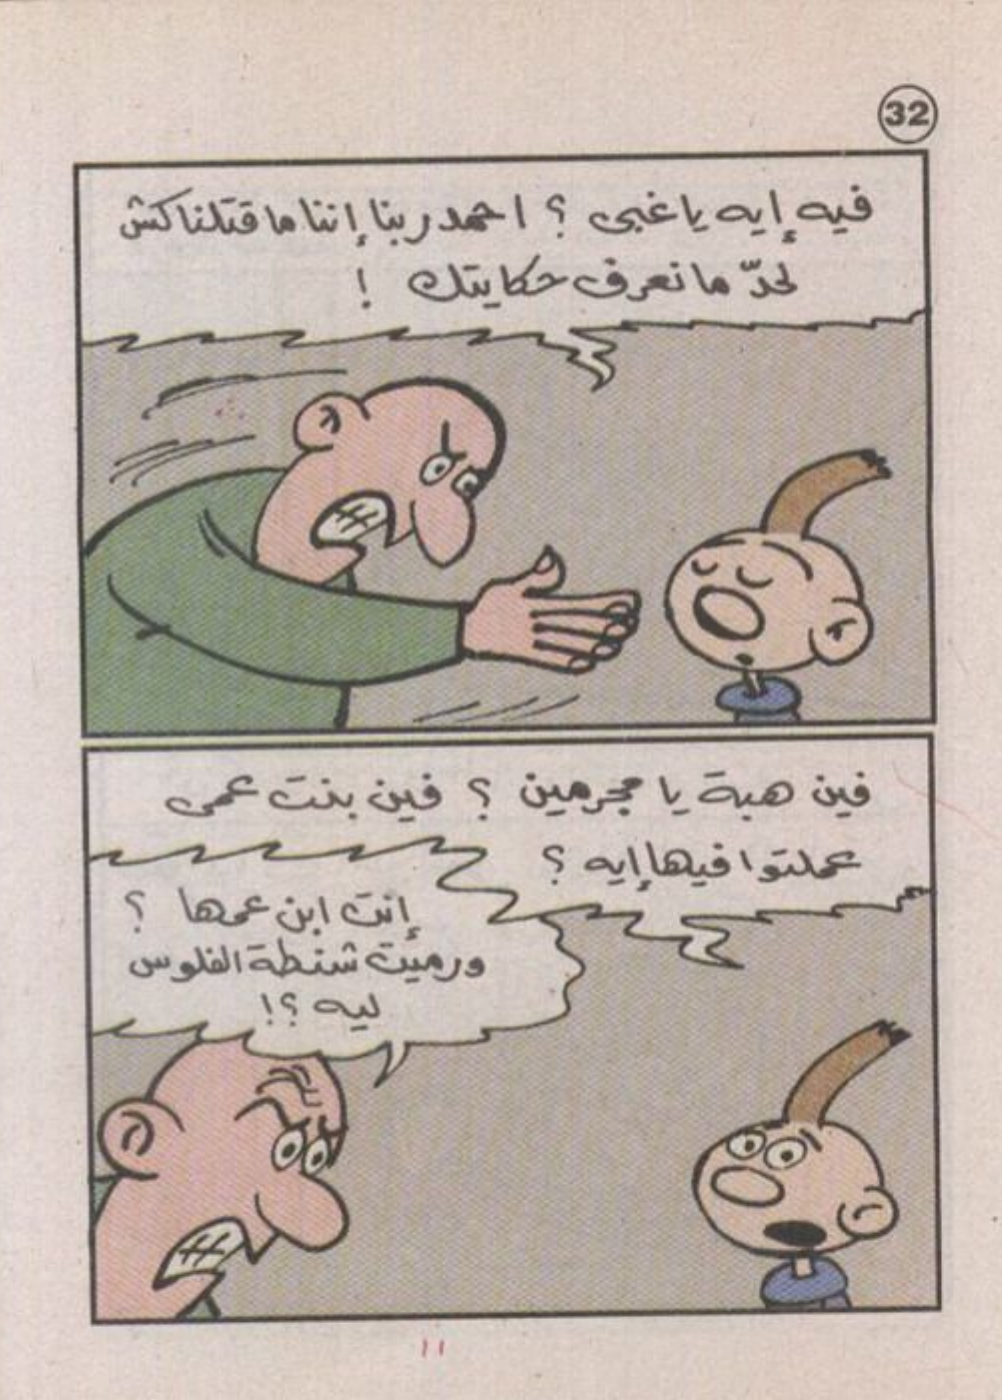 32
فيه إيه ياغبى ؟ احمد ربنا إننا ما قتلناكش
لحدّ ما نعرف حكايتك !
فين هبة يا مجرمين ؟ فين بنت عمى
عملتوا فيها إيه ؟
إنت ابن عمها ؟
ورميت شنطة الفلوس
ليه ؟!
١١